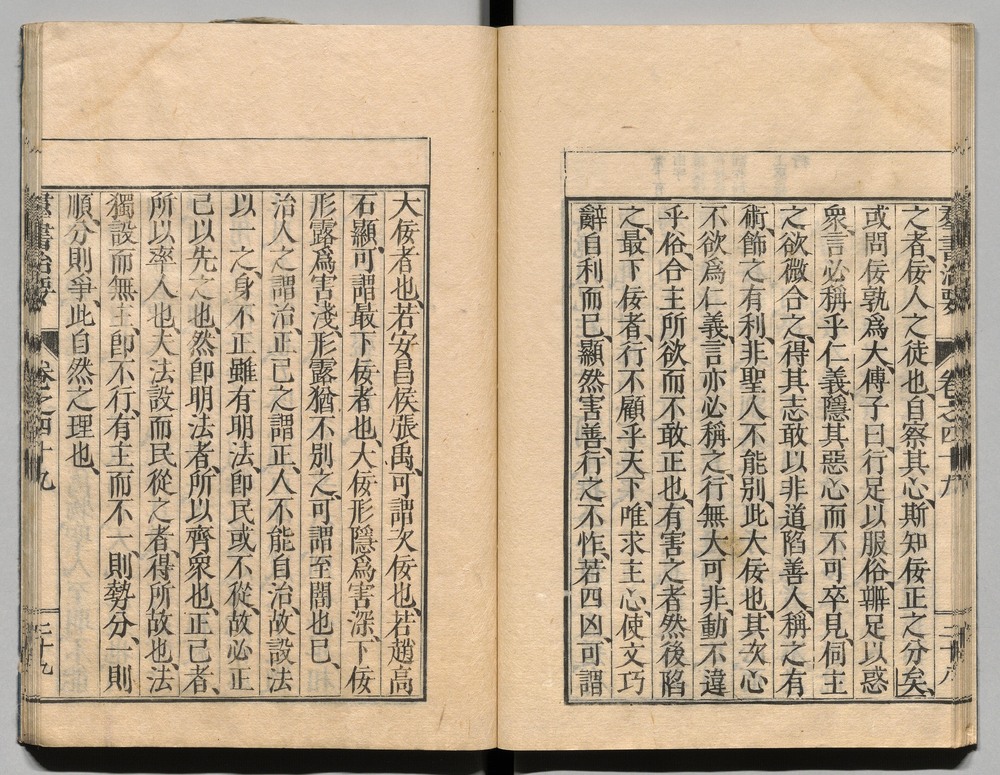 羣書治要 卷之四十九 二十八
之者、佞人之徒也、自察其心、斯知佞正之分矣、
或問佞孰爲大、傅子曰、行足以服俗、辯足以惑
衆、言必稱乎仁義、隱其惡心而不可卒見、伺主
之欲微合之、得其志敢以非道陷善人、稱之有
術、飾之有利、非聖人不能別、此大佞也、其次心
不欲爲仁義、言亦必稱之、行無大可非、動不違
乎俗、合主所欲而不敢正也、有害之者然後陷
之、最下佞者、行不顧乎天下、唯求主心、使文巧
辭、自利而已、顯然害善、行之不怍、若四凶、可謂
大佞者也、若安昌侯張禹、可謂次佞也、若趙高
石顯、可謂最下佞者也、大佞形隱爲害深、下佞
形露爲害淺、形露猶不別之、可謂至闇也已、
治人之謂治、正己之謂正、人不能自治、故設法
以一之、身不正雖有明法、卽民或不從、故必正
己以先之也、然卽明法者、所以齊衆也、正己者、
所以率人也、夫法設而民從之者、得所故也、法
獨設而無主、卽不行、有主而不一、則勢分、一則
順、分則爭、此自然之理也、
羣書治要 卷之四十九 二十九